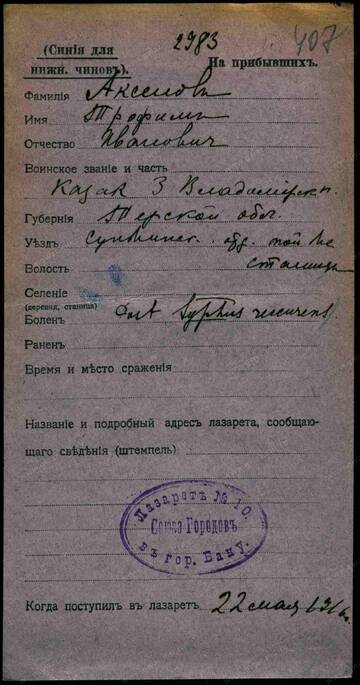 2983
407
(Синія для
нижн. чиновъ).
На прибывшихъ.
Фамилія Аксеновъ
Имя Трофимъ
Отчество Ивановичъ
Воинское званіе и часть
Казак 3
Губернія Терской обл.
Уѣздъ отд.
Волость станицы
Селеніе
(деревня, станица)
Боленъ Typhus recurens
Раненъ
Время и мѣсто сраженія
Названіе и подробный адресъ лазарета, сообщаю-
щаго свѣдѣнія (штемпель)
Лазаретъ № 10.
Союза Городовъ
въ гор. Баку.
Когда поступилъ въ лазаретъ 22 мая 191